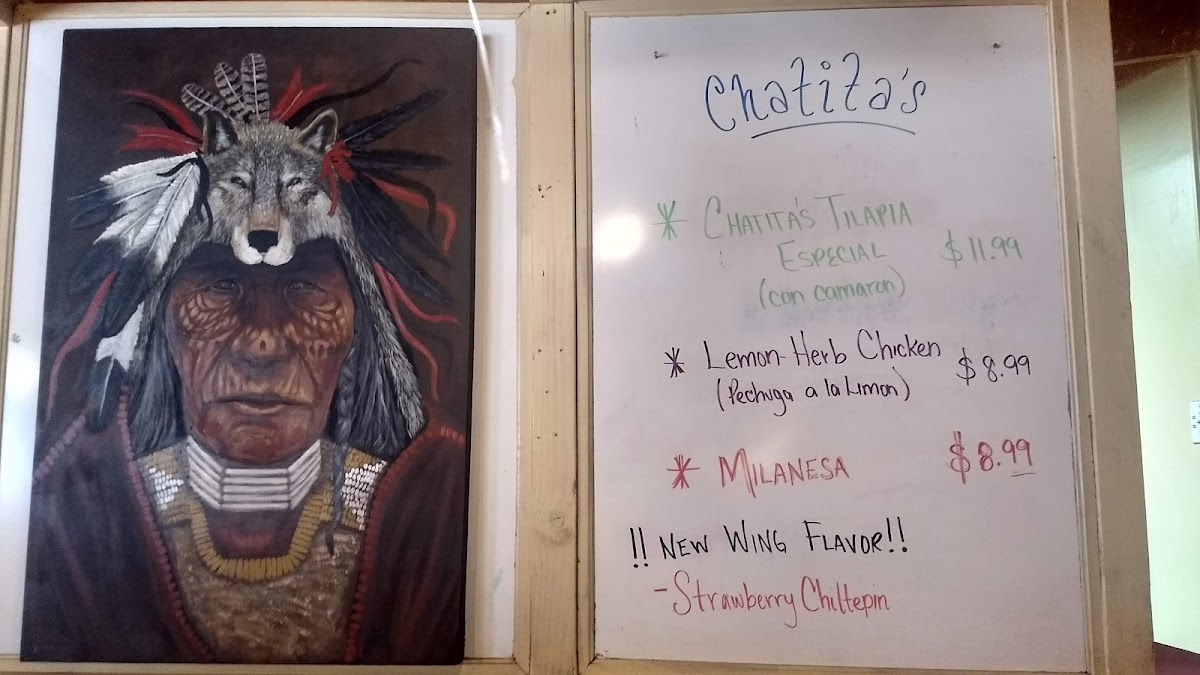 Chatita's
* CHATITA'S TILAPIA
ESPECIAL $11.99
(con camaron)
* Lemon-Herb Chicken $8.99
(Pechuga a la Limon)
* MILANESA $8.99
!! NEW WING FLAVOR!!
- Strawberry Chiltepin